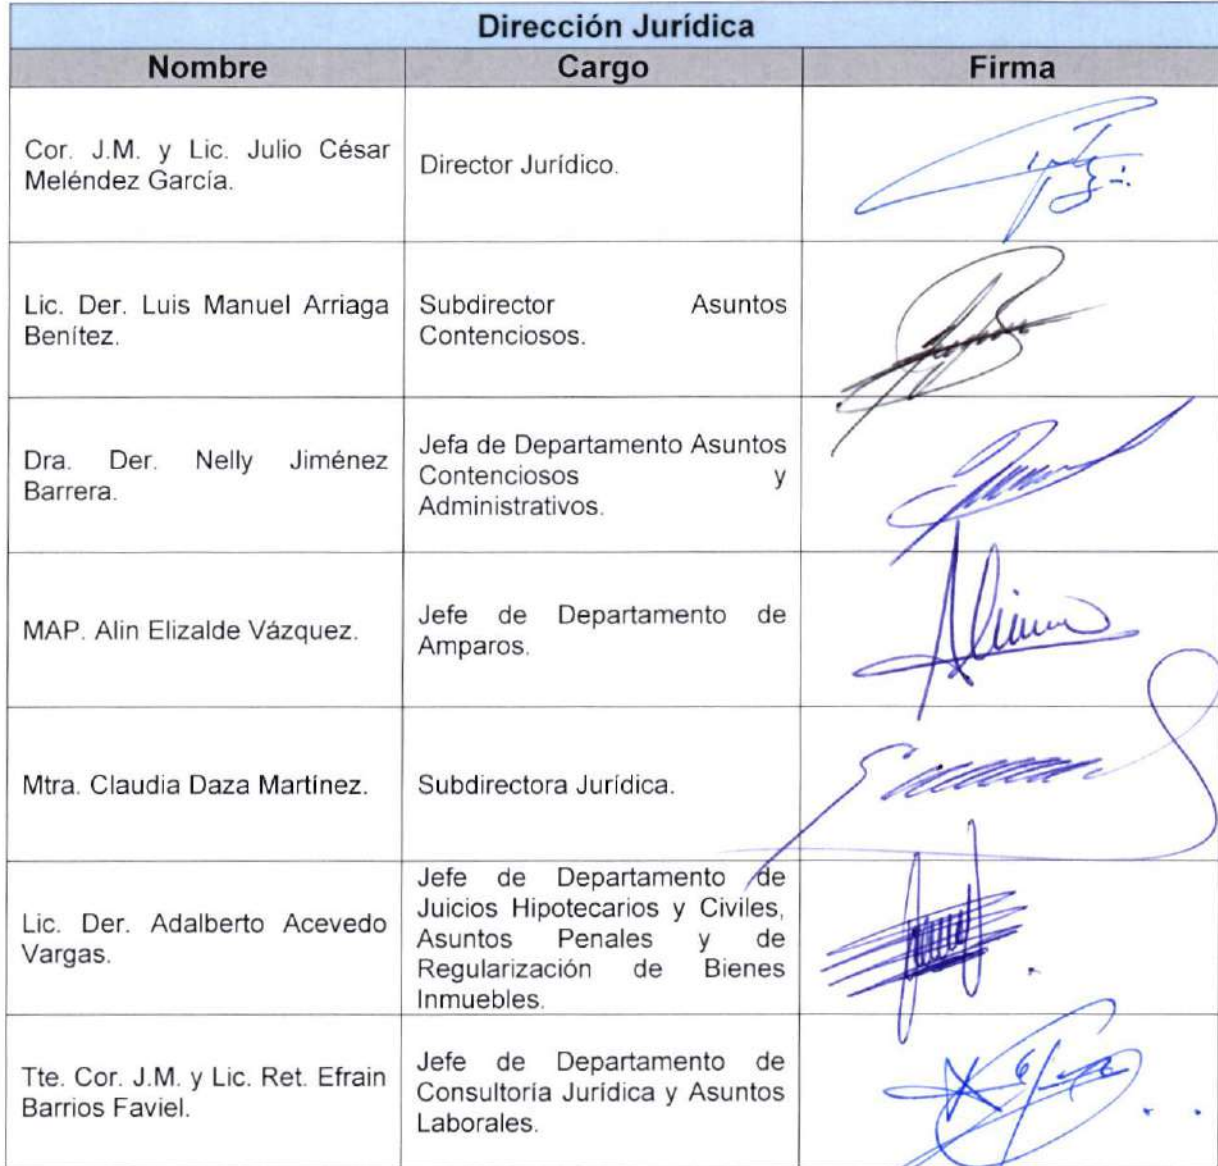 Dirección Jurídica
Nombre Cargo Firma
Cor. J.M. y Lic. Julio César
Meléndez García.
Director Jurídico.
Lic. Der. Luis Manuel Arriaga
Benítez.
Subdirector Asuntos
Contenciosos.
Dra. Der. Nelly Jiménez
Barrera.
Jefa de Departamento Asuntos
Contenciosos y
Administrativos.
MAP. Alin Elizalde Vázquez.
Jefe de Departamento de
Amparos.
Mtra. Claudia Daza Martínez.
Subdirectora Jurídica.
Lic. Der. Adalberto Acevedo
Vargas.
Jefe de Departamento de
Juicios Hipotecarios y Civiles,
Asuntos Penales y de
Regularización de Bienes
Inmuebles.
Tte. Cor. J.M. y Lic. Ret. Efrain
Barrios Faviel.
Jefe de Departamento de
Consultoría Jurídica y Asuntos
Laborales.